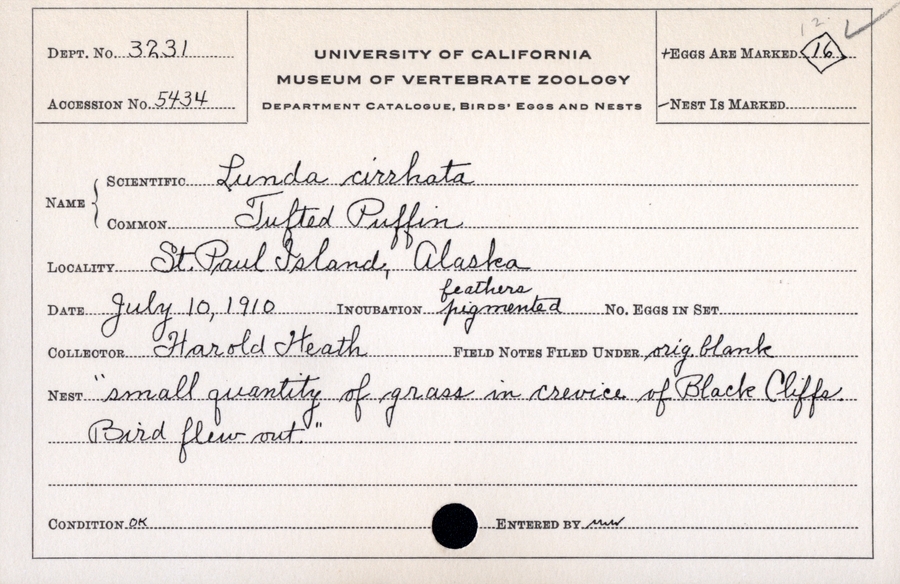 12. ✓
DEPT. No. 3231
ACCESSION No. 5434
UNIVERSITY OF CALIFORNIA
MUSEUM OF VERTEBRATE ZOOLOGY
DEPARTMENT CATALOGUE, BIRDS' EGGS AND NESTS
+EGGS ARE MARKED 16
–NEST IS MARKED
NAME { SCIENTIFIC Lunda cirrhata
COMMON Tufted Puffin
LOCALITY St. Paul Island, Alaska
feathers
DATE July 10, 1910 INCUBATION pigmented NO. EGGS IN SET
COLLECTOR Harold Heath FIELD NOTES FILED UNDER orig. blank
NEST "small quantity of grass in crevice of Black Cliffs.
Bird flew out."
CONDITION OK ENTERED BY